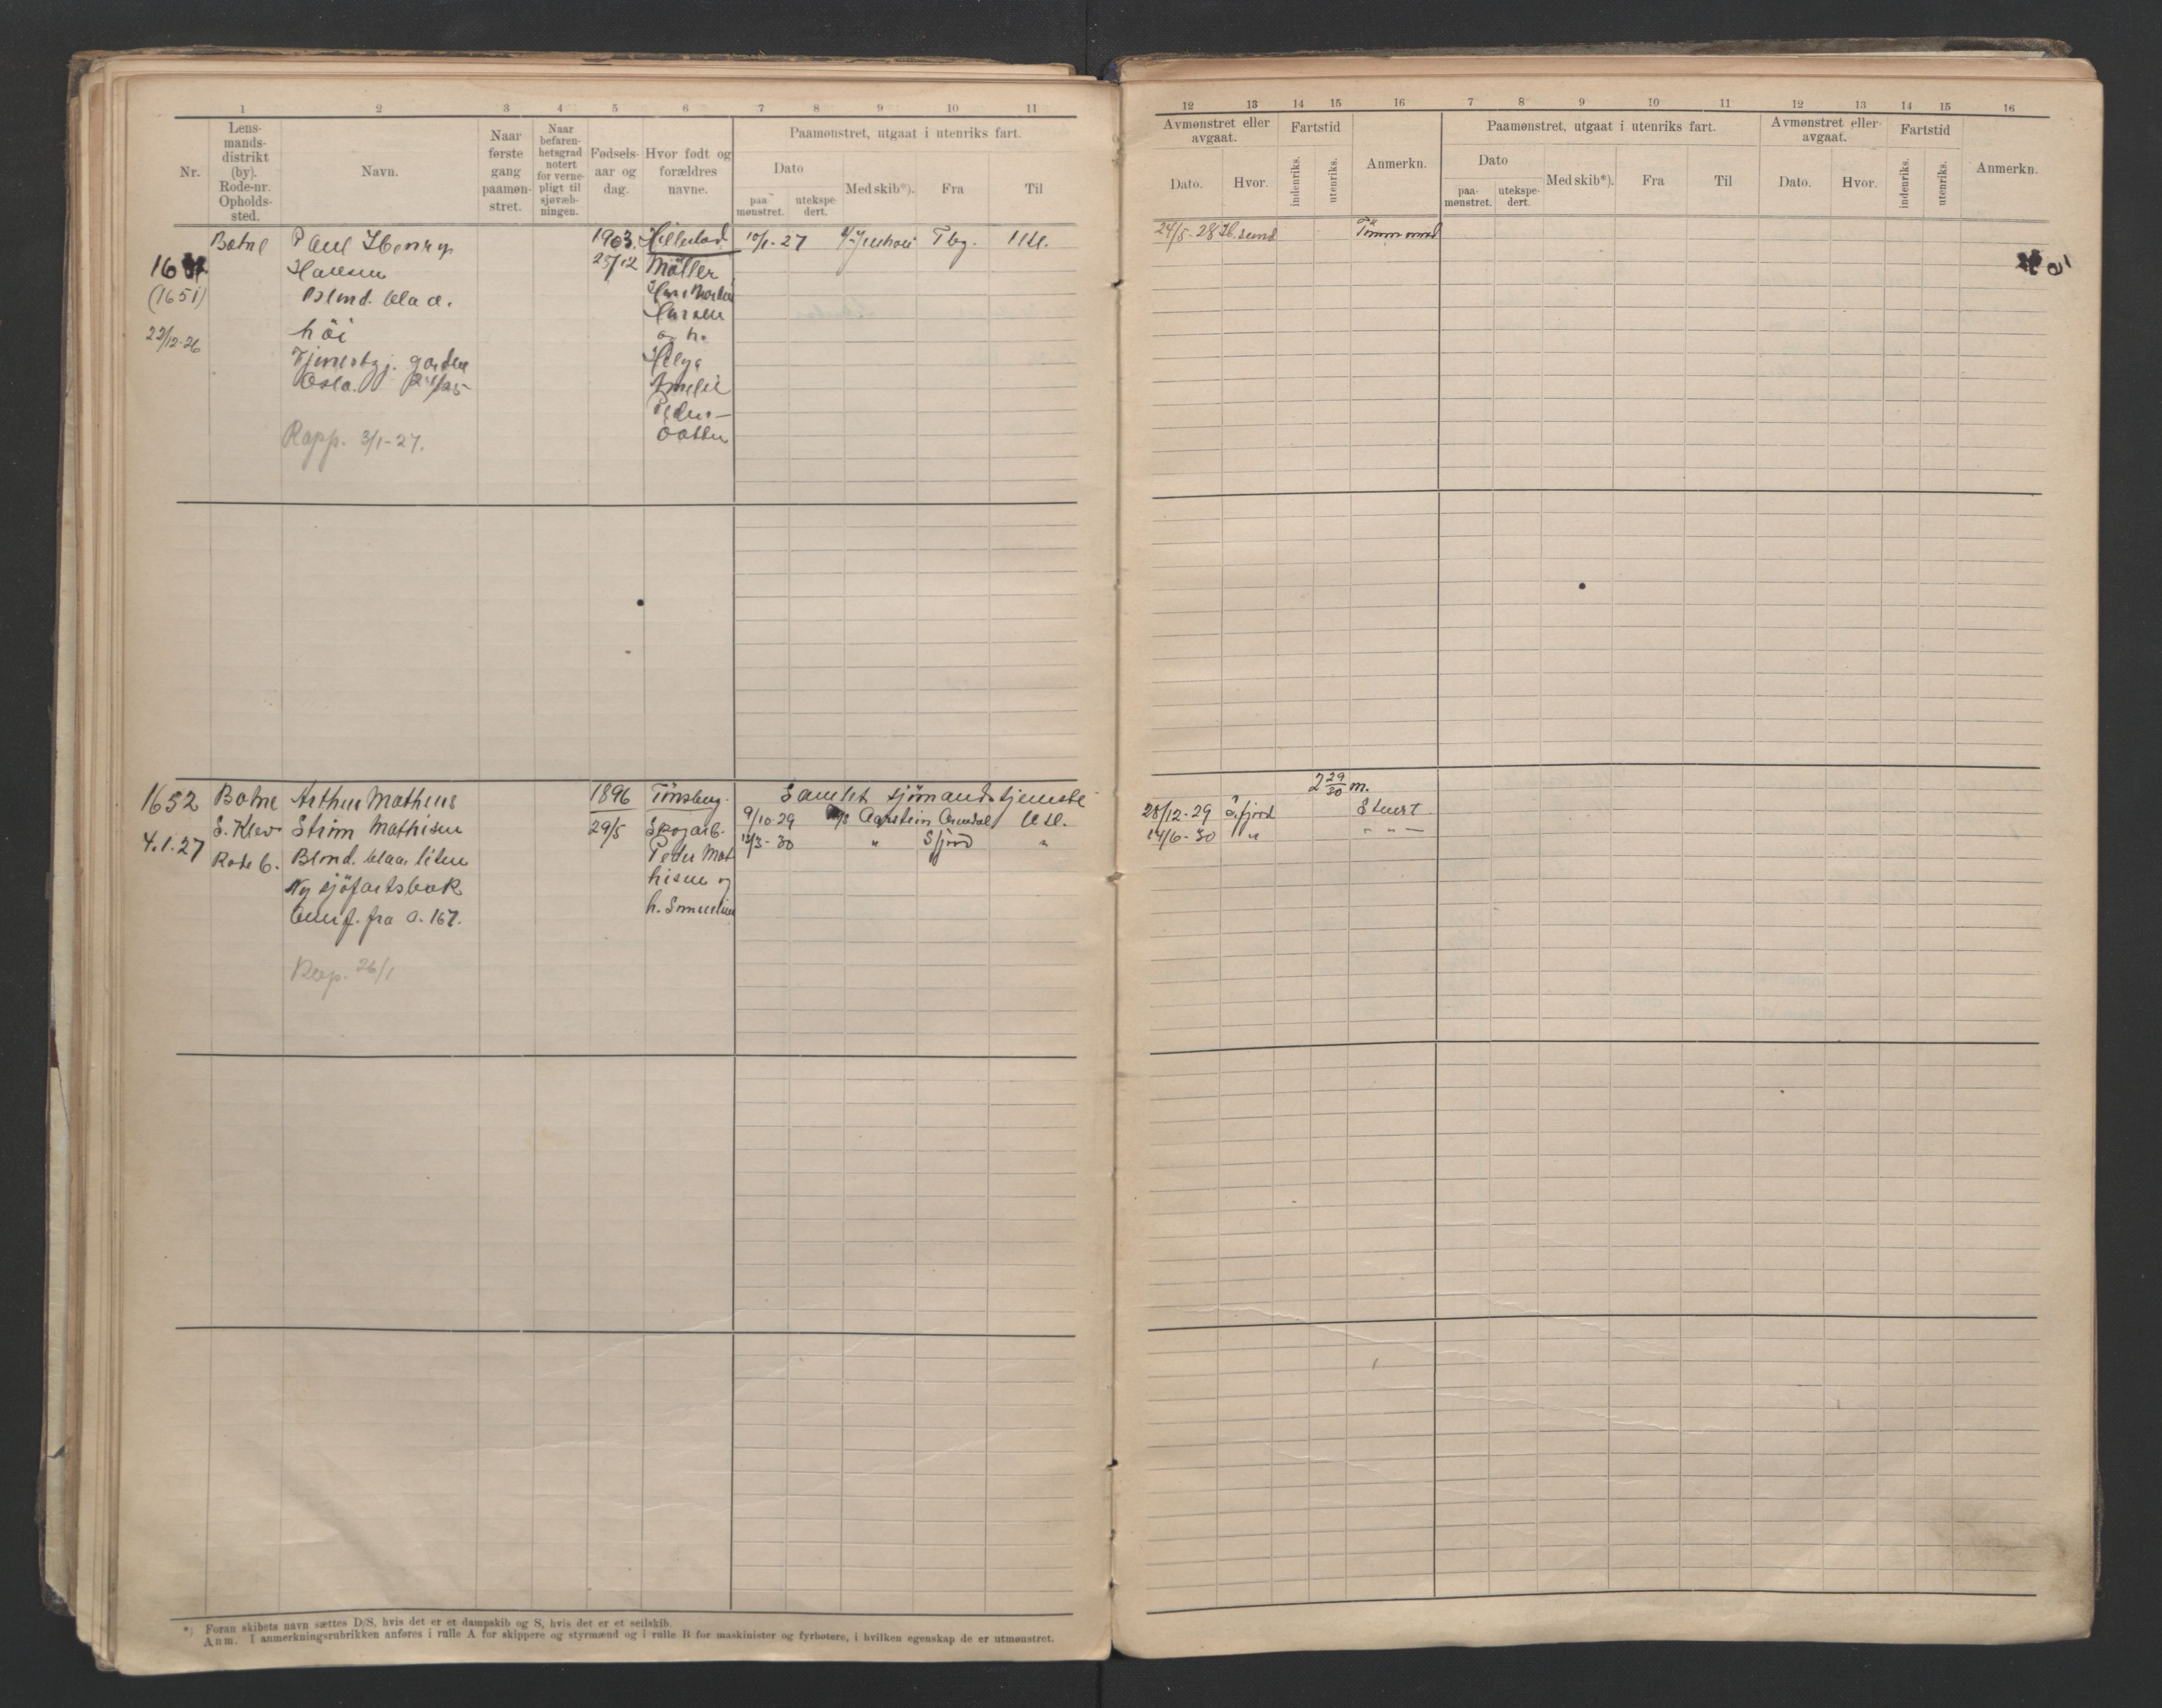 1 2 3 4 5 6 7 8 9 10 11
Nr.
Lens-
mands-
distrikt
(by).
Rode-nr.
Opholds-
sted.
Navn.
Naar
første
gang
paamøn-
stret.
Naar
befaren-
hetsgrad
notert
for verne-
pligt til
sjøvæb-
ningen.
Fødsels-
aar og
dag.
Hvor født og
forældres
navne.
Paamønstret, utgaat i utenriks fart.
Dato
paa-
mønstret.
utekspe-
dert.
Med skib*).
Fra
Til
Botne Paul Henry 1903. Hillestad 10/1-27 Tbg. Utl.
Hansen 25/12 Møller
(1651)
Blond. blaa.
Hansen
høi og h.
22/12-26
Helga
Oslo.
Amelie
Peders-
datter
Rapp. 3/1-27.
1652 Botne Arthur Matheus 1896 Tönsberg. Samlet sjömandstjeneste
S. Klev Ström Mathisen 29/5 Skogarb. 9/10-29 Agnstein Arendal Utl.
4.1.27 Rode 6. Blond. blaa. liten Peder Mat 12/3-30 " Sfjord "
Ny sjöfartsbok hisen og
Overf. fra a. 167. h.
Rap. 26/1
*) Foran skibets navn sættes D/S, hvis det er et dampskib og S, hvis det er et seilskib.
Anm. I anmerkningsrubrikken anføres i rulle A for skippere og styrmænd og i rulle B for maskinister og fyrbøtere, i hvilken egenskap de er utmønstret.
12 13 14 15 16 7 8 9 10 11 12 13 14 15 16
Avmønstret eller
avgaat.
Dato.
Hvor.
Fartstid
indenriks.
utenriks.
Anmerkn.
Paamønstret, utgaat i utenriks fart.
Dato
paa-
mønstret.
utekspe-
dert.
Med skib*).
Fra
Til
Avmønstret eller
avgaat.
Dato.
Hvor.
Fartstid
indenriks.
utenriks.
Anmerkn.
24/5-28 H.sund Tömmermd
2 29/30 m.
28/12-29 S.fjord Stuert
14/6-30 " - " -